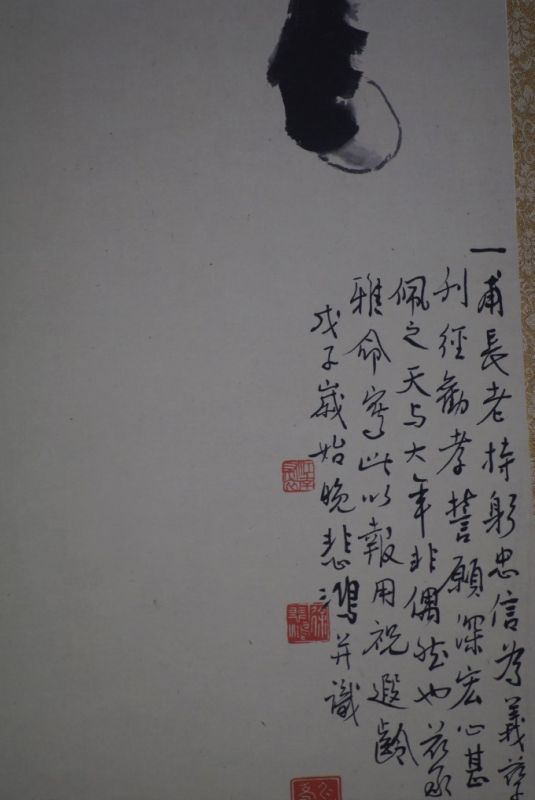 一甫長老持躬忠信為義孳
刊經勸孝誓願深宏心甚
佩之天与大年非偶然也茲承
雅命寫此以報用祝遐齡
戊子歲始晚悲鴻并識